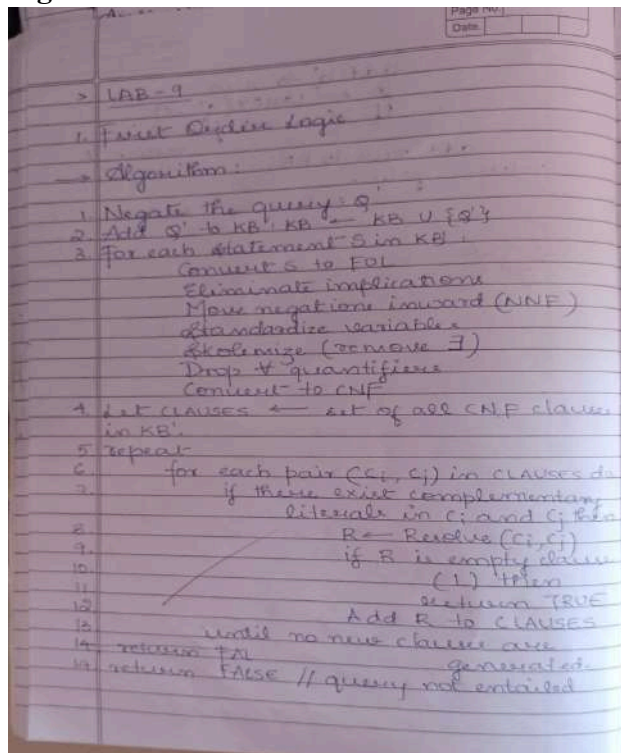 Page No.
Date
> LAB-9
1. First Order Logic
→ Algorithm:
1. Negate the query: Q'
2. Add Q' to KB': KB ← KB U {Q'}
3. For each statement S in KB':
Convert S to FOL
Eliminate implications
Move negations inward (NNF)
Standardize variables
Skolemize (remove ∃)
Drop ∀ quantifiers
Convert to CNF
4. Let CLAUSES ← set of all CNF clauses
in KB'.
5. repeat
6. for each pair (Ci, Cj) in CLAUSES do
7. if there exist complementary
literals in Ci and Cj then
8. R ← Resolve (Ci, Cj)
9. if R is empty clause
10. (⊥) then
11. return TRUE
12. Add R to CLAUSES
13. until no new clauses are
14. return FAL generated.
return FALSE // query not entailed